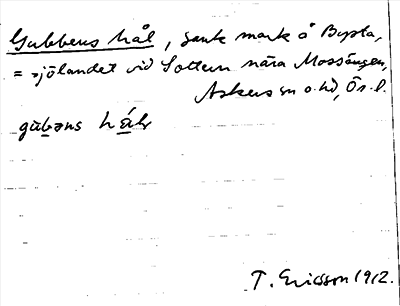 Gubbens hål, sank mark å Bysta,
= sjölandet vid Sottern nära Mossängen,
Askers sn o. hd, Ör. l.
T. Ericsson 1912.